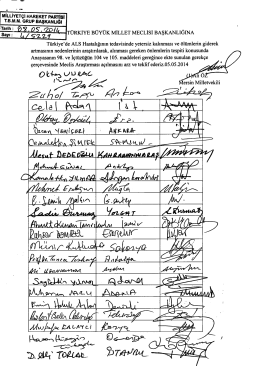 MİLLİYETÇİ HAREKET PARTİSİ
T.B.M.M. GRUP BAŞKANLIĞI
Tarih: 08.05.2014
Sayı: 4/5229
TÜRKİYE BÜYÜK MİLLET MECLİSİ BAŞKANLIĞINA
Türkiye'de ALS Hastalığının tedavisinde yetersiz kalınması ve ölümlerin giderek
artmasının nedenlerinin araştırılarak, alınması gereken önlemlerin tespiti konusunda
Anayasanın 98. ve İçtüzüğün 104 ve 105. maddeleri gereğince ekte sunulan gerekçe
çerçevesinde Meclis Araştırması açılmasını arz ve teklif ederiz.05.05.2014
Oktay VURAL
ÖZ
İzmir
Mersin Milletvekili
Zuhal Topcu Ankara
Celal Adan İst.
Oktay Öztürk Erz.
Özcan YENİÇERİ ANKARA
Cemalettin ŞİMŞEK SAMSUN
Mesut DEDEOĞLU KAHRAMANMARAŞ
Mehmet Günal Antalya
Mehmet Erdoğan Muğla
Sadir Durmaz YOZGAT
Ahmet Kenan Tanrıkulu İzmir
Ruhsar DEMİREL Eskişehir
Münir Kutluata Sakarya
Antalya
Ali Uzunırmak Aydın
Seyfettin Yılmaz ADANA
Muharrem VARLI ADANA
Emin Haluk Ayhan Denizli
Bülent Belen Tekirdağ
Mustafa KALAYCI Konya
Osmaniye
D. Ali TORLAK İSTANBUL